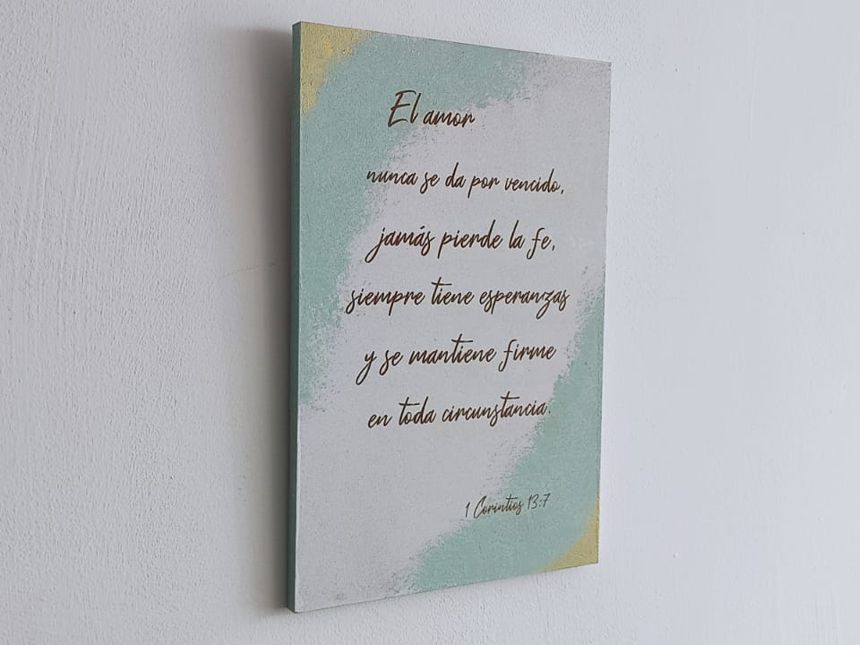 El amor
nunca se da por vencido,
jamás pierde la fe,
siempre tiene esperanzas
y se mantiene firme
en toda circunstancia.
1 Corintios 13:7